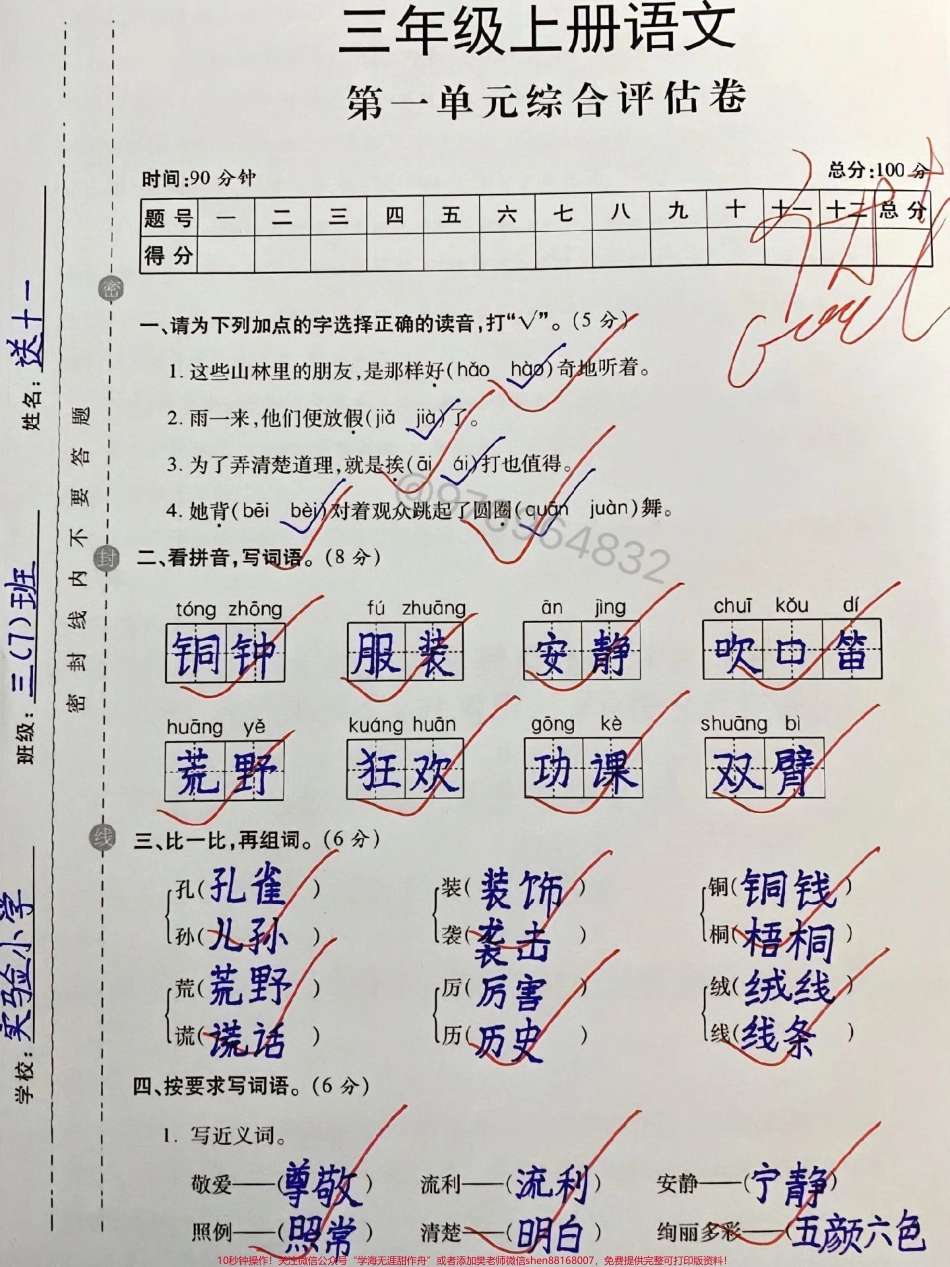 三年级上册语文
第一单元综合评估卷
时间:90分钟 总分:100分
题号 一 二 三 四 五 六 七 八 九 十 十一 十二 总分
得分
一、请为下列加点的字选择正确的读音,打“√”。(5分)
1. 这些山林里的朋友,是那样好(hǎo hào)奇地听着。
2. 雨一来,他们便放假(jiǎ jià)了。
3. 为了弄清楚道理,就是挨(āi ái)打也值得。
4. 她背(bēi bèi)对着观众跳起了圆圈(quān juàn)舞。
@978964832
二、看拼音,写词语。(8分)
tóng zhōng fú zhuāng ān jìng chuī kǒu dí
铜钟 服装 安静 吹口笛
huāng yě kuáng huān gōng kè shuāng bì
荒野 狂欢 功课 双臂
三、比一比,再组词。(6分)
孔(孔雀) 装(装饰) 铜(铜钱)
孙(儿孙) 袭(袭击) 桐(梧桐)
荒(荒野) 厉(厉害) 绒(绒线)
谎(谎话) 历(历史) 线(线条)
四、按要求写词语。(6分)
1. 写近义词。
敬爱——(尊敬) 流利——(流利) 安静——(宁静)
照例——(照常) 清楚——(明白) 绚丽多彩——(五颜六色)
10秒钟操作！关注微信公众号“学海无涯甜作舟”或者添加樊老师微信shen88168007，免费提供完整可打印版资料！
学校:实验小学 班级:三(7)班 姓名:送十一
密封线内不要答题
密 封 线